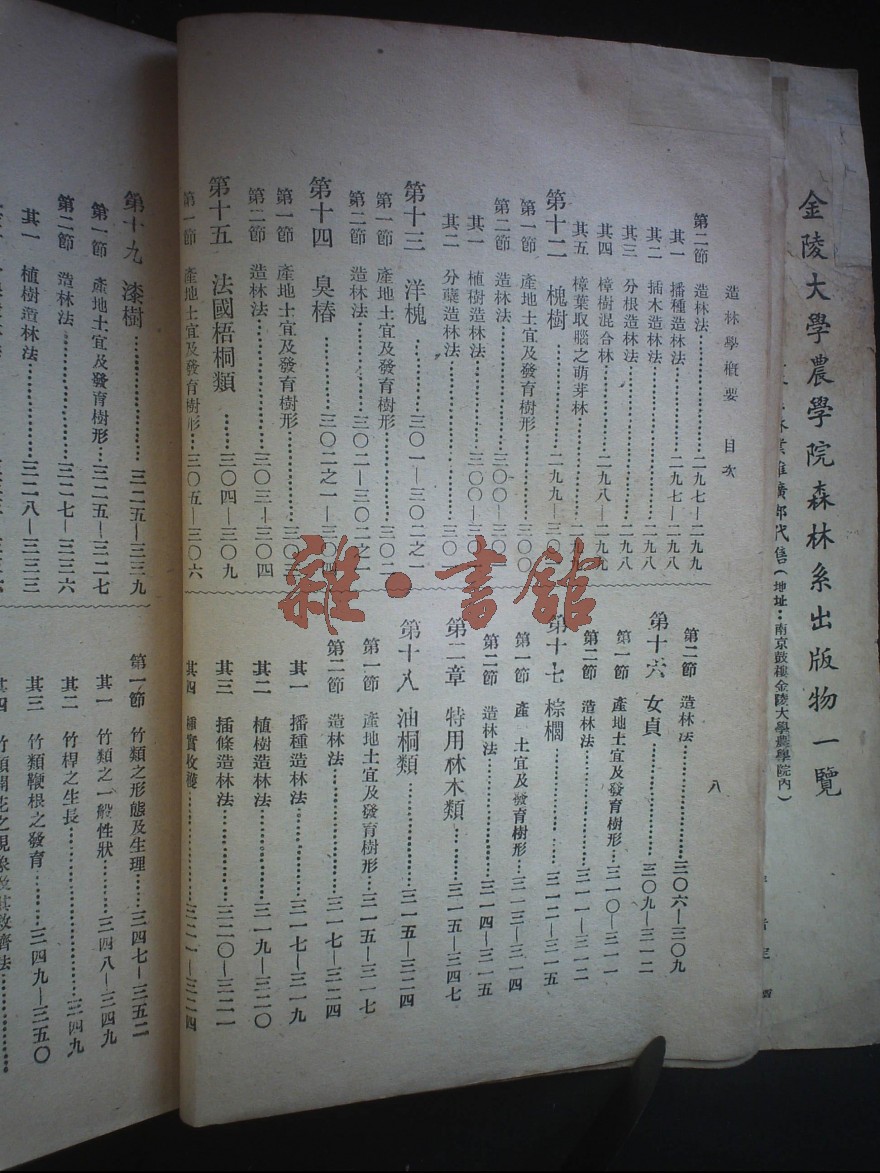 金陵大學農學院森林系出版物一覽
林業推廣部代售(地址：南京鼓樓金陵大學農學院內)
造林學概要 目次
八
第二節 造林法………二九七—二九九
其一 播種造林法………二九七—二九八
其二 插木造林法………二九八
其三 分根造林法………二九八
其四 樟樹混合林………二九八—二九九
其五 樟葉取腦之萌芽林………二九九
第十二 槐樹………二九九—三〇
第一節 產地土宜及發育樹形………三〇〇
第二節 造林法………三〇〇—三〇
其一 植樹造林法………三〇〇—三〇
其二 分蘗造林法………三〇
第十三 洋槐………三〇一—三〇二之一
第一節 產地土宜及發育樹形………三〇二
第二節 造林法………三〇二—三〇二之一
第十四 臭椿………三〇二之一—三〇四
第一節 產地土宜及發育樹形………三〇三
第二節 造林法………三〇三—三〇四
第十五 法國梧桐類………三〇四—三〇九
第一節 產地土宜及發育樹形………三〇五—三〇六
第二節 造林法………三〇六—三〇九
第十六 女貞………三〇九—三一二
第一節 產地土宜及發育樹形………三一〇—三一一
第二節 造林法………三一一—三一二
第十七 棕櫚………三一二—三一五
第一節 產 土宜及發育樹形………三一三—三一四
第二節 造林法………三一四—三一五
第二章 特用林木類………三一五—三四七
第十八 油桐類………三一五—三二四
第一節 產地土宜及發育樹形………三一五—三一七
第二節 造林法………三一七—三二四
其一 播種造林法………三一七—三一九
其二 植樹造林法………三一九—三二〇
其三 插條造林法………三二〇—三二一
其四 種實收穫………三二一—三二四
雜·書館
第十九 漆樹………三二五—三三九
第一節 產地土宜及發育樹形………三二五—三二七
第二節 造林法………三二七—三三六
其一 植樹造林法………三二八—三三三
第一節 竹類之形態及生理………三四七—三五二
其一 竹類之一般性狀………三四八—三四九
其二 竹桿之生長………三四九
其三 竹類鞭根之發育………三四九—三五〇
其四 竹類開花之現象及其救濟法………